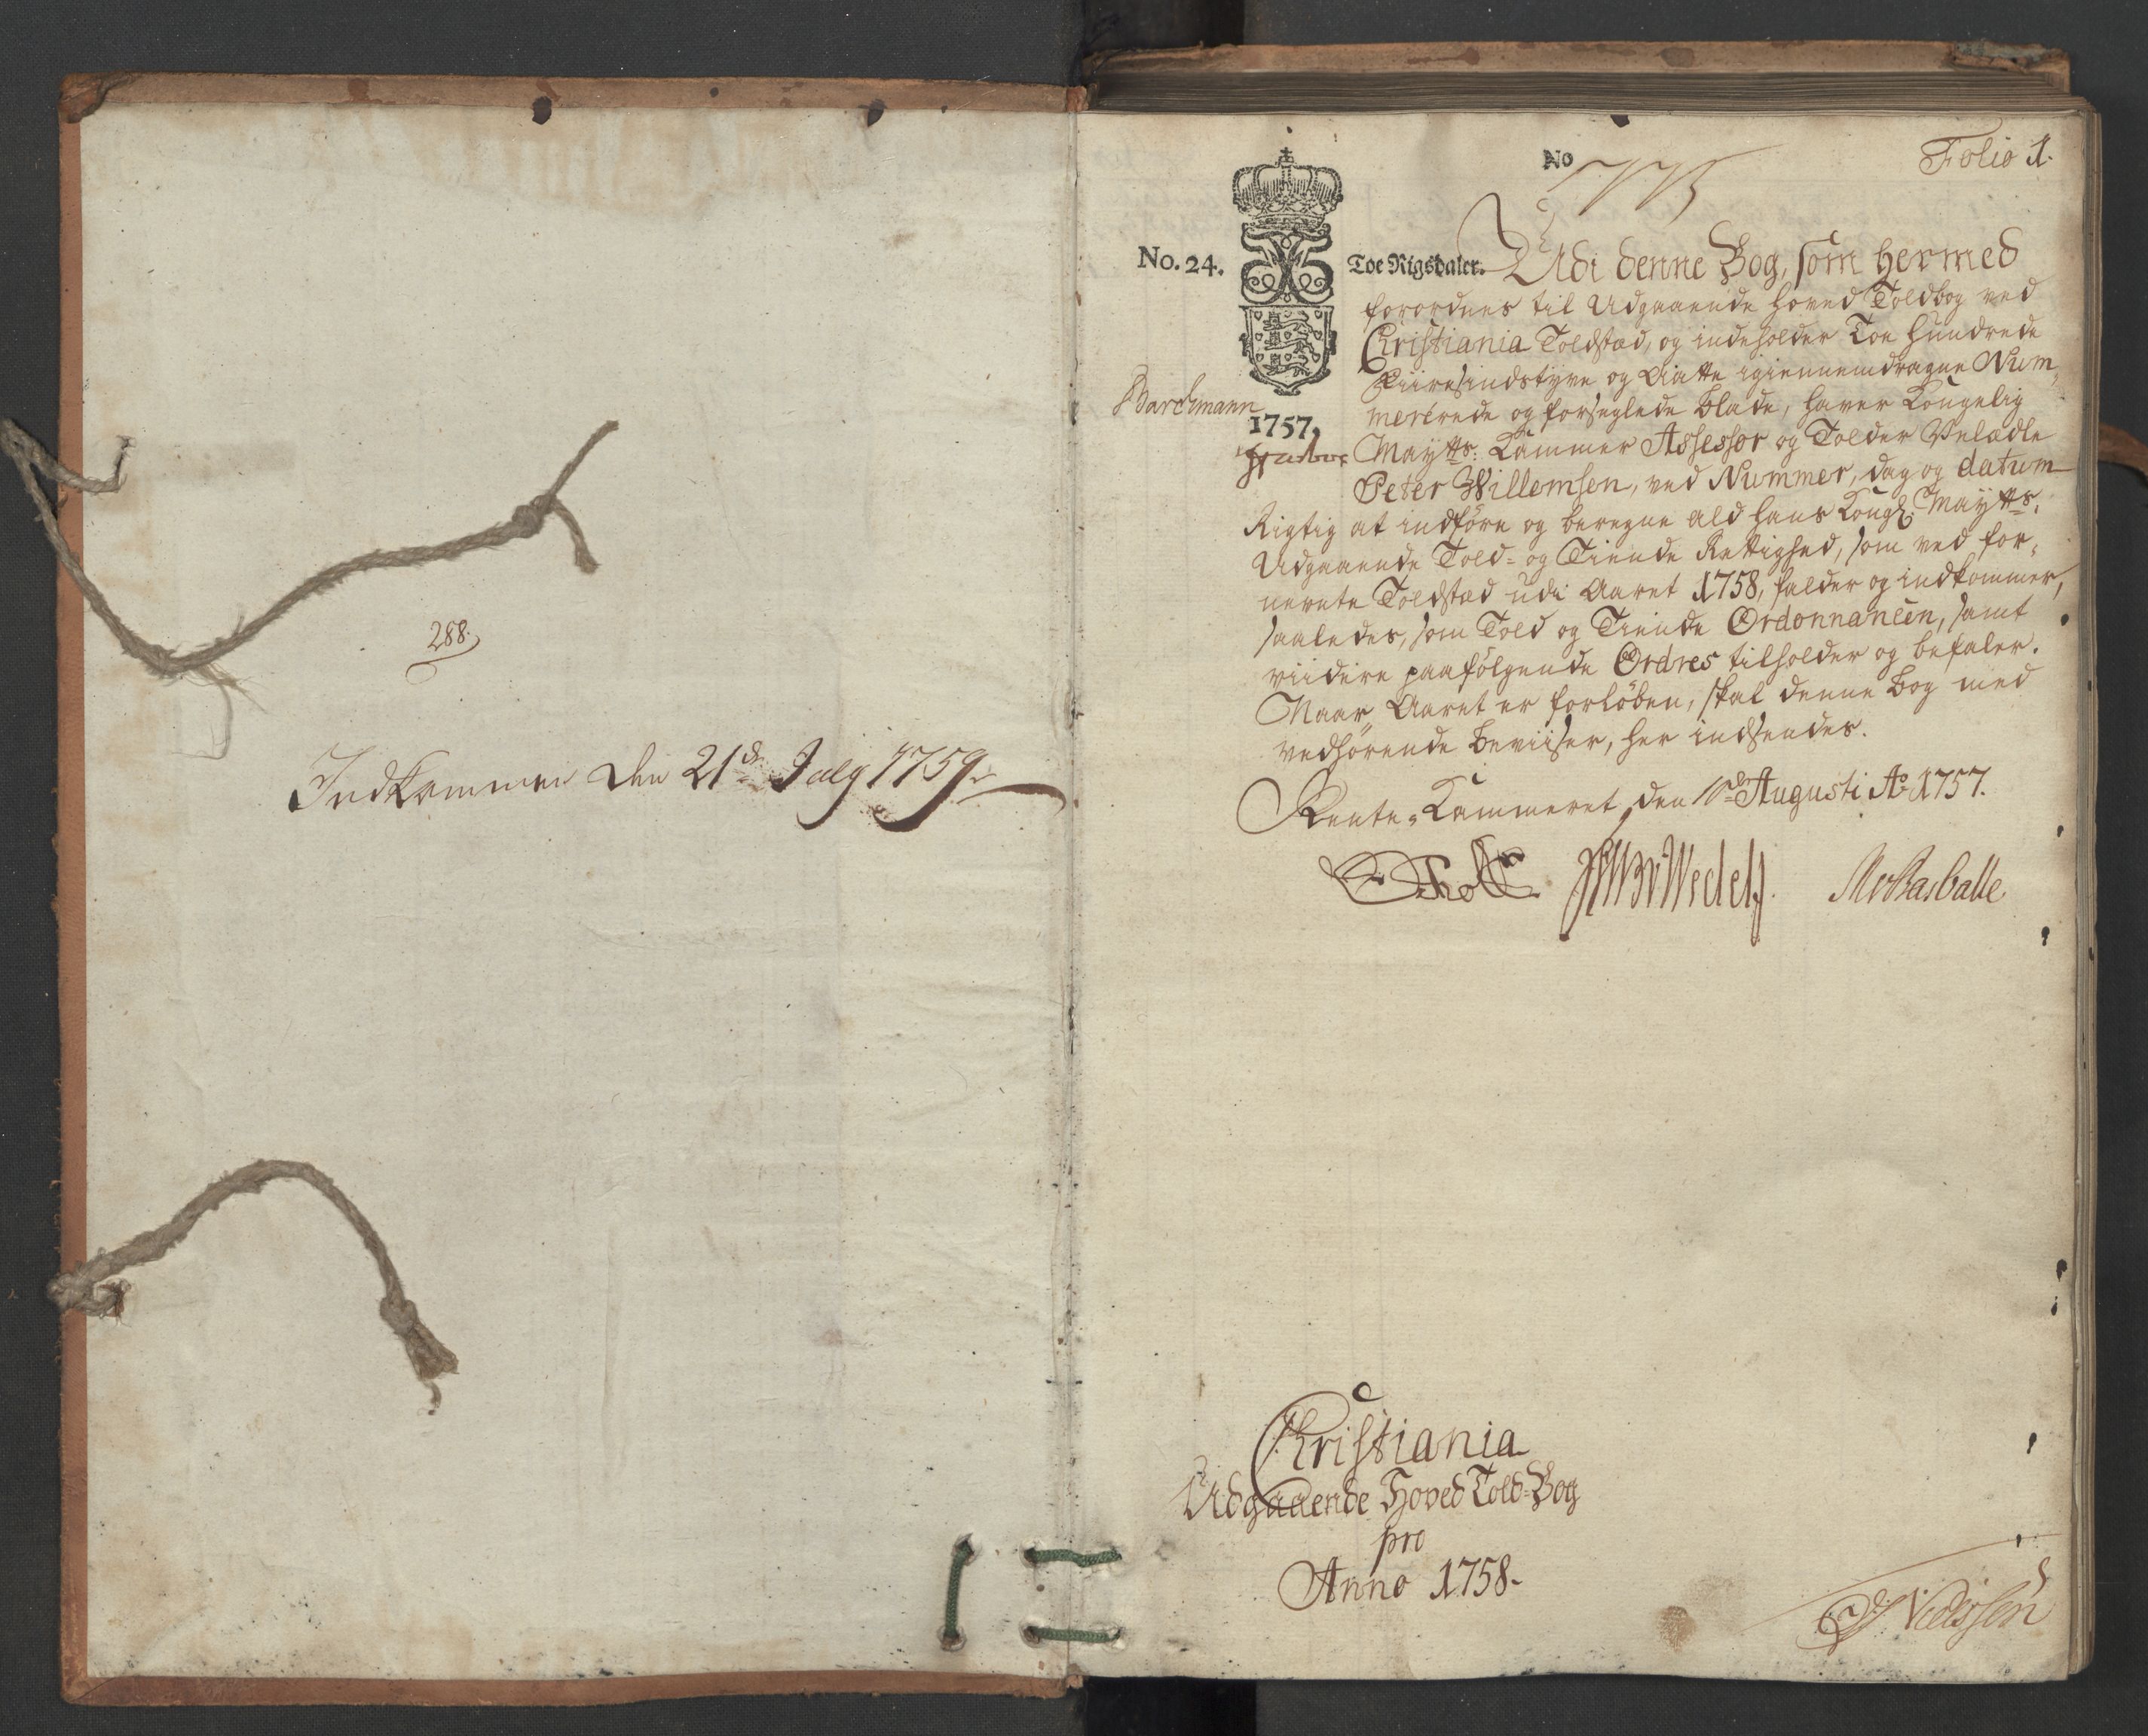 288.
Indkommen den 21de July 1759
No
Folio 1.
No. 24.
Toe Rigsdaler.
1757.
Udi denne Bog, som hermed
forordnes til Udgaaende Hoved Toldbog ved
Christiania Toldstæd, og indeholder Toe Hundrede
Fiiresindstyve og Aatte igiennemdragne Num-
mererede og forseglede blade, haver Kongelig
Maytts: Kammer Assessor og Tolder Velædle
Peter Willemsen, ved Nummer, dag og datum
Rigtig at indføre og beregne ald Hans Kongl: Maytts:
Udgaaende Told- og Tiende Rettighed, som ved for-
nevnte Toldstæd udi Aaret 1758, falder og indkommer,
saaledes, som Told og Tiende Ordonnancen, samt
viidere paafølgende Ordres tilholder og befaler.
Naar Aaret er forløben, skal denne bog med
vedhørende beviiser, her indsendes.
Rente-Kammeret, den 10de Augusti Ao 1757.
Barchmann
Christiania
Udgaaende Hoved Told-Bog
pro
Anno 1758.